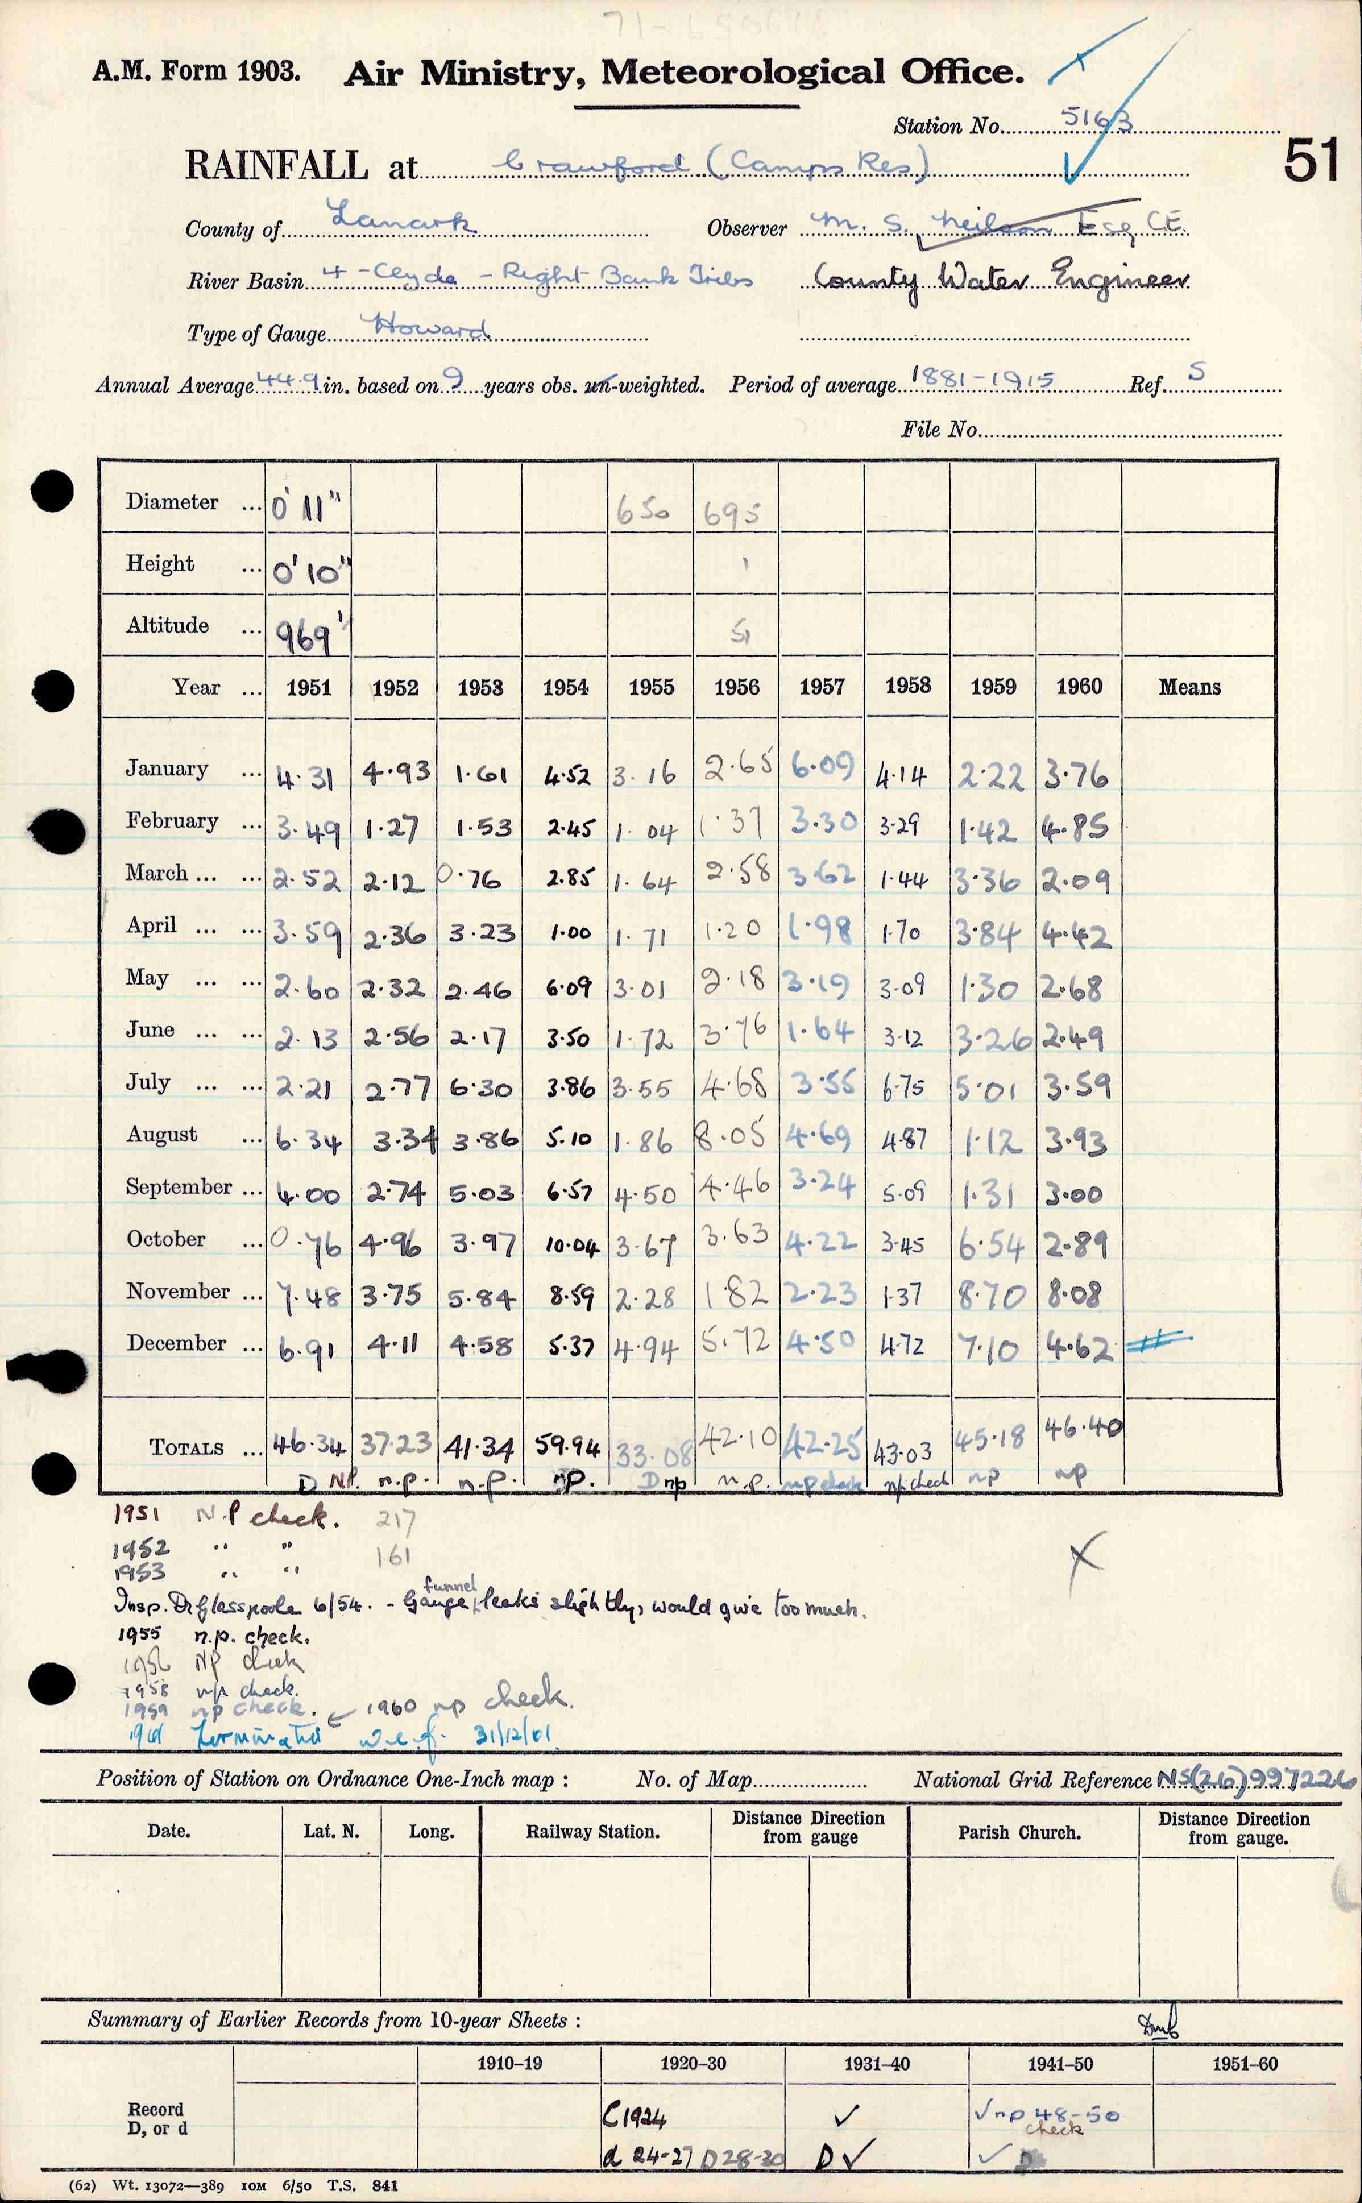 71-690676
A.M. Form 1903. Air Ministry, Meteorological Office.
Station No. 5163
RAINFALL at Crawford (Camps Res)
51
County of Lanark Observer M. S. Neilson Esq CE.
River Basin 4 - Clyde - Right Bank Tribs County Water Engineer
Type of Gauge Howard
Annual Average 44.9 in. based on 9 years obs. un-weighted. Period of average 1881-1915 Ref. S
File No.
Diameter ... 0'11" 650 695
Height ... 0'10"
Altitude ... 969' 51
Year ... 1951 1952 1953 1954 1955 1956 1957 1958 1959 1960 Means
January ... 4.31 4.93 1.61 4.52 3.16 2.65 6.09 4.14 2.22 3.76
February ... 3.49 1.27 1.53 2.45 1.04 1.37 3.30 3.29 1.42 4.85
March ... ... 2.52 2.12 0.76 2.85 1.64 2.58 3.62 1.44 3.36 2.09
April ... ... 3.59 2.36 3.23 1.00 1.71 1.20 1.98 1.70 3.84 4.42
May ... ... 2.60 2.32 2.46 6.09 3.01 2.18 3.19 3.09 1.30 2.68
June ... ... 2.13 2.56 2.17 3.50 1.72 3.76 1.64 3.12 3.26 2.49
July ... ... 2.21 2.77 6.30 3.86 3.55 4.68 3.55 6.75 5.01 3.59
August ... 6.34 3.34 3.86 5.10 1.86 8.05 4.69 4.87 1.12 3.93
September ... 4.00 2.74 5.03 6.57 4.50 4.46 3.24 5.09 1.31 3.00
October ... 0.76 4.96 3.97 10.04 3.67 3.63 4.22 3.45 6.54 2.89
November ... 7.48 3.75 5.84 8.59 2.28 1.82 2.23 1.37 8.70 8.08
December ... 6.91 4.11 4.58 5.37 4.94 5.72 4.50 4.72 7.10 4.62
TOTALS ... 46.34 37.23 41.34 59.94 33.08 42.10 42.25 43.03 45.18 46.40
D NP. n.p. n.p. np. D np n.p. np check np check np np
1951 N.P check. 217
1952 " " 161
1953 " "
Insp. Dr Glasspoole 6/54. - Gauge funnel leaks slightly, would give too much.
1955 n.p. check.
1956 NP check
1958 n/p check.
1959 np check. 1960 np check.
1961 Terminated w.e.f. 31/12/61
Position of Station on Ordnance One-Inch map : No. of Map National Grid Reference NS(26)997226
Date. Lat. N. Long. Railway Station. Distance Direction from gauge Parish Church. Distance Direction from gauge.
Summary of Earlier Records from 10-year Sheets :
1910-19 1920-30 1931-40 1941-50 1951-60
Record D, or d C1924 ✓ ✓np 48-50 check
d 24-27 D 28-30 D✓ ✓ D
(62) Wt. 13072-389 IOM 6/50 T.S. 841